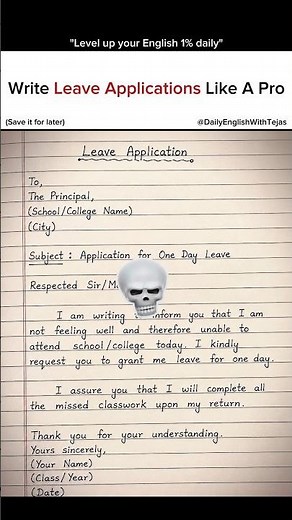 "Level up your English 1% daily"
Write Leave Applications Like A Pro
(Save it for later)
@DailyEnglishWithTejas
Leave Application
To,
The Principal,
(School/College Name)
(City)
Subject : Application for One Day Leave
Respected Sir/
I am writing inform you that I am
not feeling well and therefore unable to
attend school/college today. I kindly
request you to grant me leave for one day.
I assure you that I will complete all
the missed classwork upon my return.
Thank you for your understanding.
Yours sincerely,
(Your Name)
(Class/Year)
(Date)